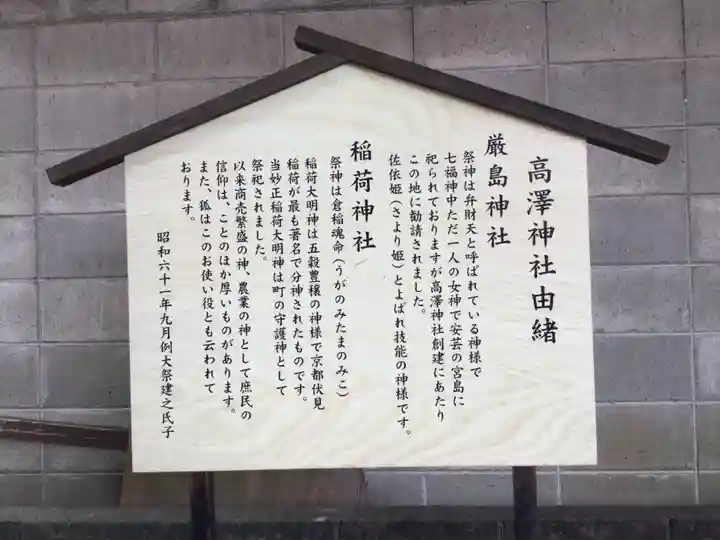 高澤神社由緒
厳島神社
祭神は弁財天と呼ばれている神様で
七福神中ただ一人の女神で安芸の宮島に
祀られておりますが高澤神社創建にあたり
この地に勧請されました。
佐依姫(さより姫)とよばれ技能の神様です。
稲荷神社
祭神は倉稲魂命(うがのみたまのみこ)
稲荷大明神は五穀豊穣の神様で京都伏見
稲荷が最も著名で分神されたものです。
当妙正稲荷大明神は町の守護神として
祭祀されました。
以来商売繁盛の神、農業の神として庶民の
信仰は、ことのほか厚いものがあります。
また、狐はこのお使い役とも云われて
おります。
昭和六十一年九月例大祭建之氏子